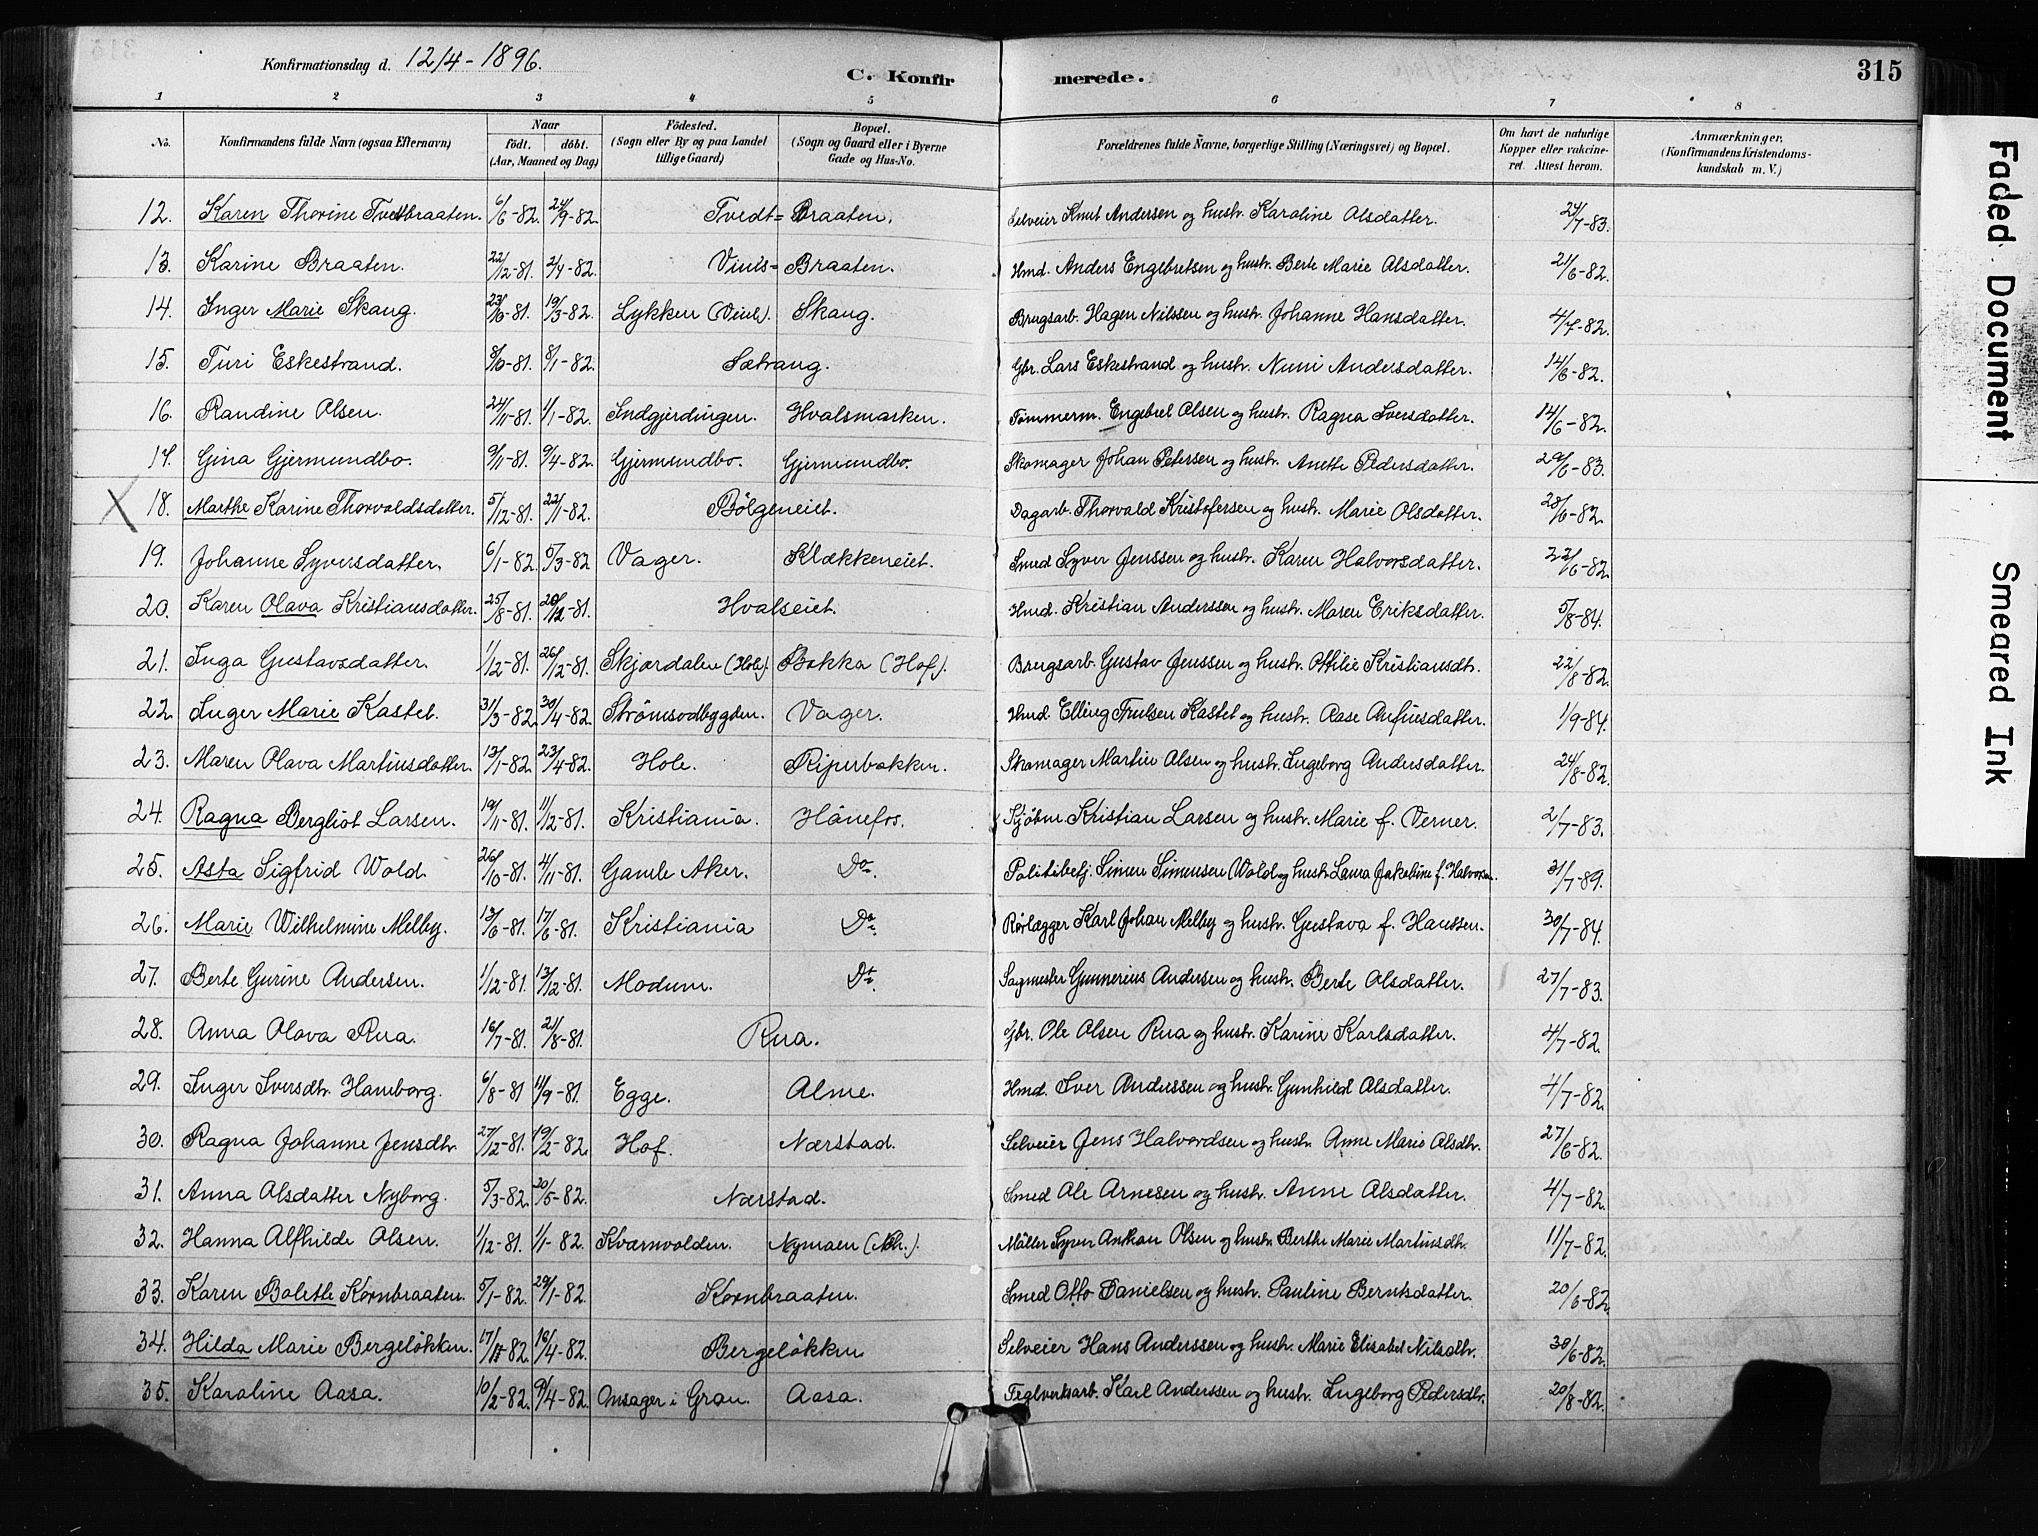 Konfirmationsdag d. 12/4-1896.
C. Konfir merede.
315
1 2 3 4 5 6 7 8
No. Konfirmandens fulde Navn (ogsaa Efternavn) Naar födt. döbt. (Aar, Maaned og Dag) Födested. (Sogn eller By og paa Landet tillige Gaard) Bopæl. (Sogn og Gaard eller i Byerne Gade og Hus-No. Forældrenes fulde Navne, borgerlige Stilling (Næringsvei) og Bopæl. Om havt de naturlige Kopper eller vakcineret. Attest herom. Anmærkninger, (Konfirmandens Kristendomskundskab m. V.)
12. Karen Thorine Tvedtbraaten. 6/6-82. 24/9-82. Tvedt=Braaten. Selveier Knut Andersen og hustr. Karoline Olsdatter. 24/7-83.
13. Karine Braaten. 22/12-81. 2/4-82. Viuls=Braaten. Hmd. Anders Engebretsen og hustr. Berte Marie Olsdatter. 21/6-82.
14. Inger Marie Skaug. 23/10-81. 19/3-82. Lykken (Viul). Skaug. Brugsarb. Hagen Nilssen og hustr. Johanne Hansdatter. 4/7-82.
15. Turi Eskestrand. 8/10-81. 8/1-82. Sætrang. Gbr. Lars Eskestrand og hustr. Nuni Andersdatter. 14/6-82.
16. Randine Olsen. 24/11-81. 1/1-82. Indgjerdingen. Hvalsmarken. Tömmerm. Engebret Olsen og hustr. Ragna Iversdatter. 14/6-82.
17. Gina Gjermundbo. 9/11-81. 9/4-82. Gjermundbo. Gjermundbo. Skomager Johan Petersen og hustr. Anette Pedersdatter. 29/6-83.
X 18. Marthe Karine Thorvaldsdatter. 5/12-81. 22/1-82. Bölgeneiet. Dagarb. Thorvald Kristofersen og hustr. Marie Olsdatter. 28/6-82.
19. Johanne Syversdatter. 6/1-82. 5/3-82 Vager. Klækkeneiet. Smed Syver Jenssen og hustr. Karen Halvorsdatter. 22/6-82.
20. Karen Olava Kristiansdatter. 25/8-81. 26/12-81. Hvalseiet. Hmd. Kristian Anderssen og hustr. Maren Eriksdatter. 5/8-84.
21. Inga Gustavsdatter. 1/12-81. 26/12-81. Skjærdalen (Hole) Bakka (Hof). Brugsarb. Gustav Jenssen og hustr. Ottilie Kristiansdtr. 22/8-82.
22. Inger Marie Kastet. 31/3-82. 30/4-82. Strömsodbygden. Vager. Hmd. Elling Trulsen Kastet og hustr. Aase Anfinsdatter. 1/9-84.
23. Maren Olava Martinsdatter. 13/1-82. 23/4-82. Hole. Ripurbakken. Skomager Martin Olsen og hustr. Ingeborg Andersdatter. 24/8-82.
24. Ragna Bergliot Larsen. 19/11-81. 11/12-81. Kristiania. Hönefos. Kjöbm. Kristian Larsen og hustr. Marie f. Verner. 2/7-83.
25. Asta Sigfrid Wold. 26/10-81. 4/11-81. Gamle Aker. Do. Politibetj. Simen Simensen Wold og hustr. Laura Jakobine f. Halvorsen. 31/7-89.
26. Marie Wilhelmine Melby. 13/6-81. 17/6-81. Kristiania Do. Rörlægger Karl Johan Melby og hustr. Gustava f. Hanssen. 30/7-84.
27. Berte Gurine Andersen. 1/12-81. 13/12-81. Modum. Do. Sagmester Gunnerius Andersen og hustr. Berte Olsdatter. 27/7-83.
28. Anna Olava Rua. 16/7-81. 21/8-81. Rua. Gbr. Ole Olsen Rua og hustr. Karine Karlsdatter. 4/7-82.
29. Inger Iversdtr. Hamborg. 6/8-81 11/9-81. Egge. Alme. Hmd. Iver Anderssen og hustr. Gunhild Olsdatter. 4/7-82.
30. Ragna Johanne Jensdtr. 27/12-81. 19/2-82. Hof. Nærstad. Selveier Jens Halvordsen og hustr. Anne Marie Olsdtr. 27/6-82.
31. Anna Olsdatter Nyborg. 5/3-82. 20/5-82. Nærstad. Smed Ole Arnesen og hustr. Anne Olsdatter. 4/7-82.
32. Hanna Alfhilde Olsen. 1/12-81. 1/1-82. Kværnvolden. Nymoen Möller Syver Anton Olsen og hustr. Berthe Marie Martinsdtr. 11/7-82.
33. Karen Bolette Kornbraaten. 5/1-82. 29/1-82. Kornbraaten. Smed Otto Danielsen og hustr. Pauline Berntsdatter. 20/6-82.
34. Hilda Marie Bergelökken. 17/-82. 16/4-82. Bergelökken Selveier Hans Anderssen og hustr. Marie Elisabet Nilsdtr. 30/6-82.
35. Karoline Aasa. 10/2-82. 9/4-82. Onsager i Gran. Aasa. Teglverksarb. Karl Anderssen og hustr. Ingeborg Pedersdtr. 20/8-82.
Faded Document
Smeared Ink